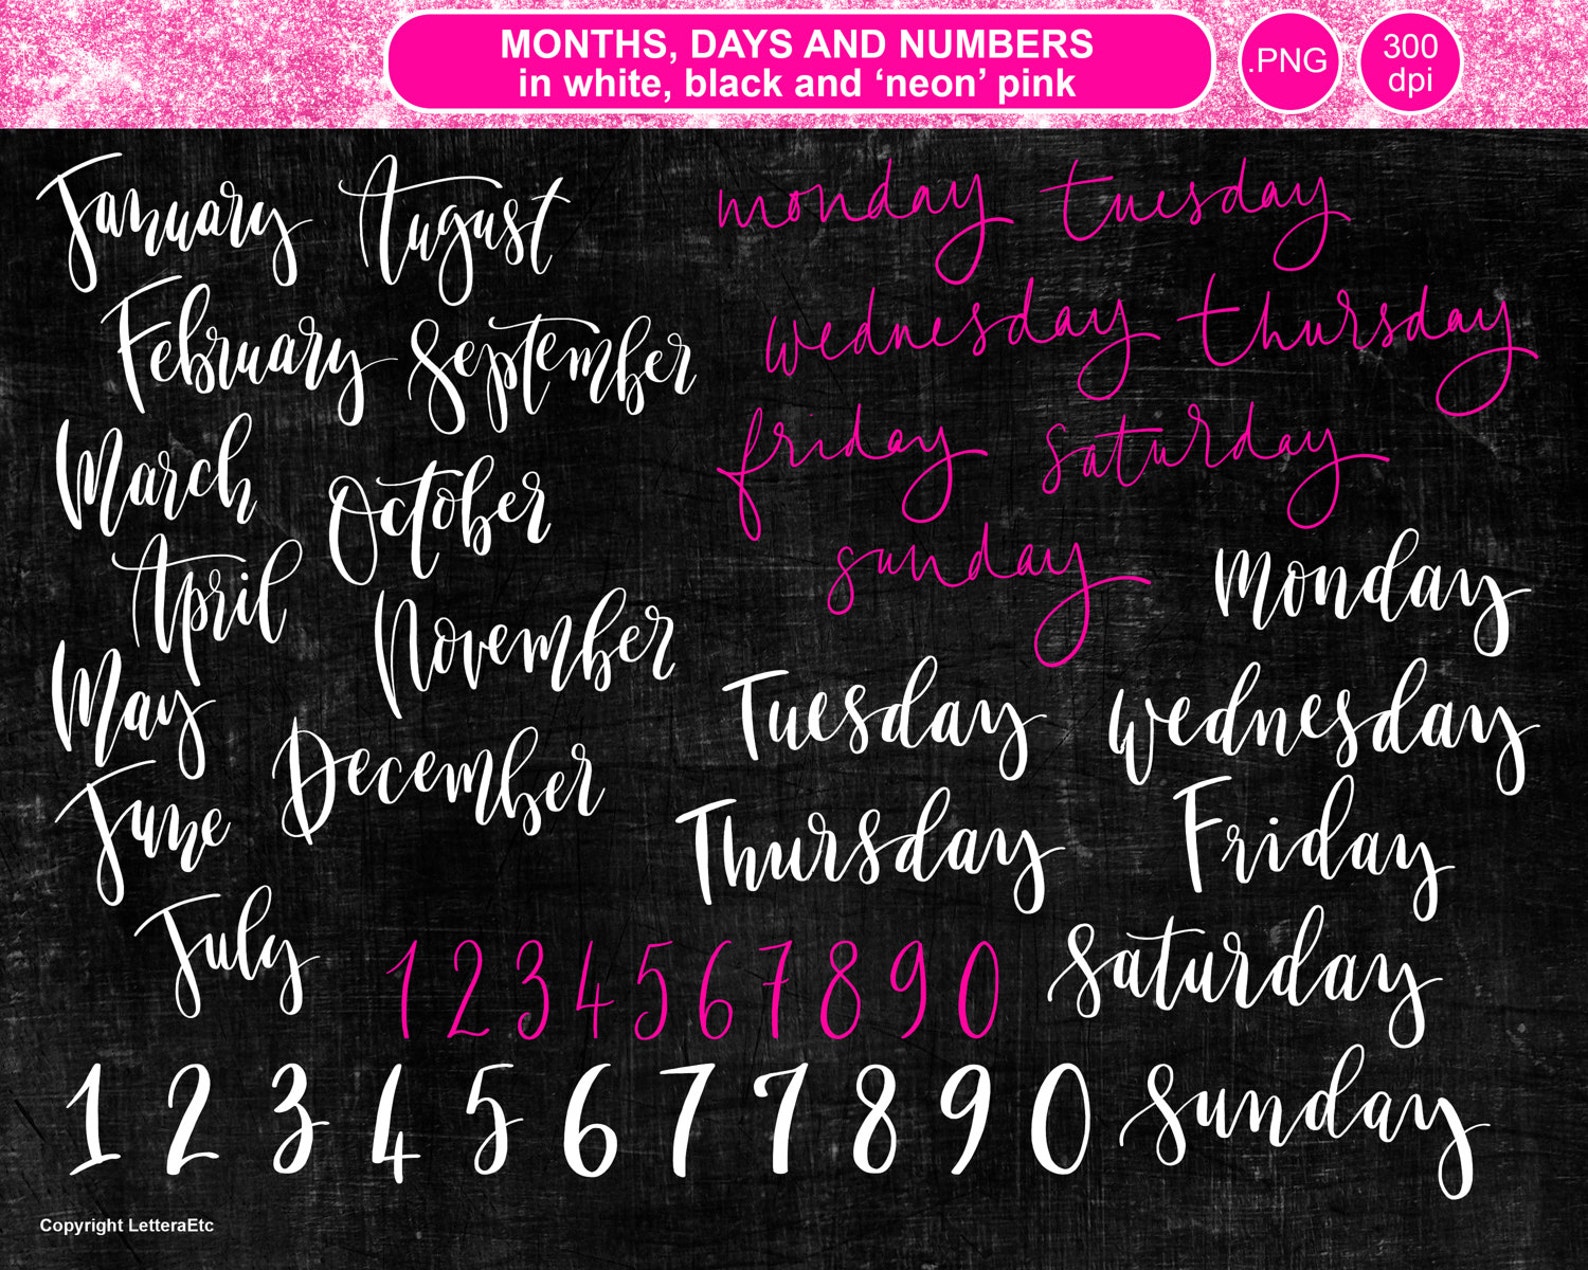 MONTHS, DAYS AND NUMBERS
in white, black and ‘neon’ pink
.PNG
300
dpi
January August
February September
March
October
April
November
May
December
June
July
monday tuesday
wednesday thursday
friday saturday
sunday
monday
Tuesday wednesday
Thursday Friday
saturday
sunday
1 2 3 4 5 6 7 8 9 0
1 2 3 4 5 6 7 7 8 9 0
Copyright LetteraEtc